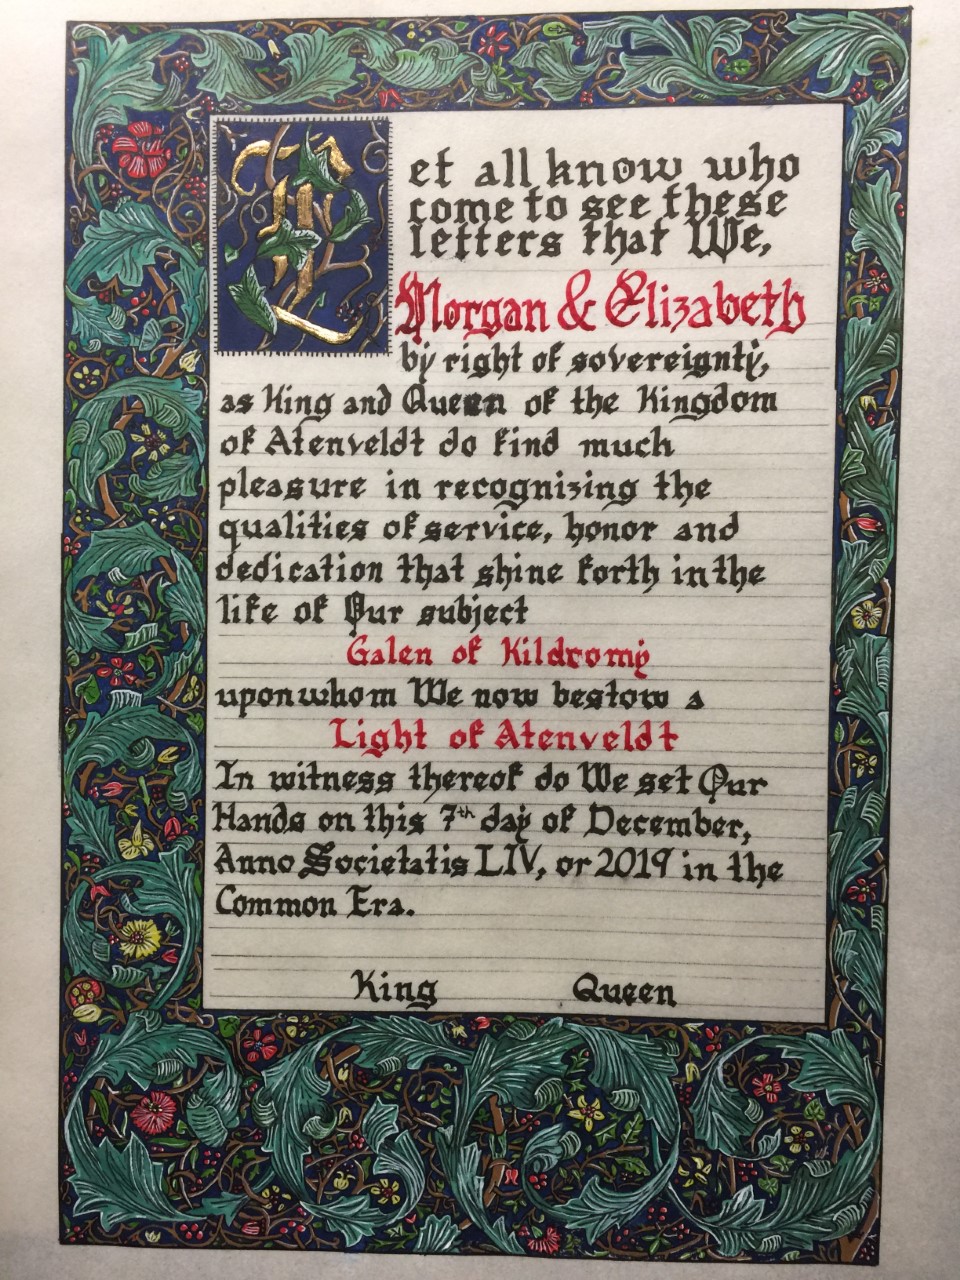 Let all know who
come to see these
letters that We,
Morgan & Elizabeth
by right of sovereignty,
as King and Queen of the Kingdom
of Atenveldt do find much
pleasure in recognizing the
qualities of service, honor and
dedication that shine forth in the
life of Our subject
Galen of Kildromy
upon whom We now bestow a
Light of Atenveldt
In witness thereof do We set Our
Hands on this 7th day of December,
Anno Societatis LIV, or 2019 in the
Common Era.
King Queen